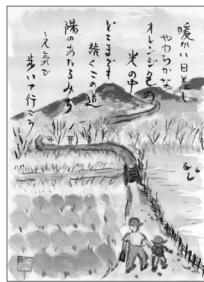 暖かい日差し
やわらかな
オレンジ色の
光の中
どこまでも
続くこの道
陽のあたるみち
元気で
歩いて行こう